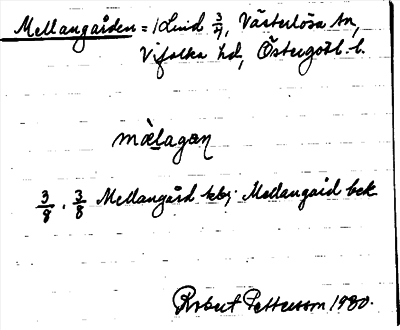 Mellangården = 1 Lund 3/4, Västerlösa sn,
Vifolka hd, Östergötl. l.
mælagan
3/8 . 3/8 Mellangård kbj. Mellangård bek
Robert Pettersson 1930.